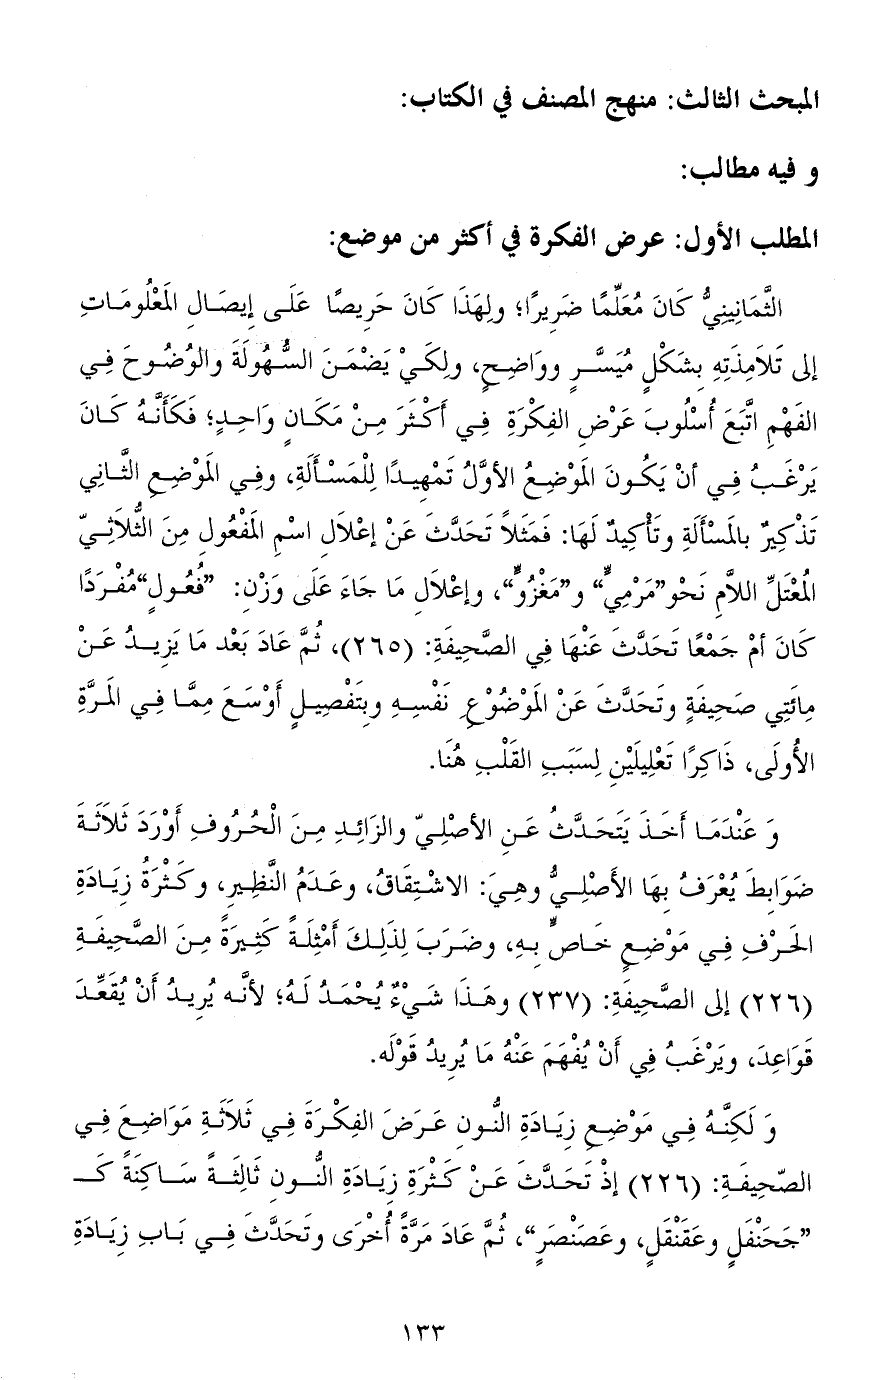 المبحث الثالث: منهج المصنف في الكتاب:
و فيه مطالب:
المطلب الأول: عرض الفكرة في أكثر من موضع:
الثَّمَانِينِيُّ كَانَ مُعَلِّمًا ضَرِيرًا؛ ولِهَذَا كَانَ حَرِيصًا عَلَى إيصَالِ المَعْلُومَاتِ
إلى تَلاَمِذَتِهِ بشَكْلٍ مُيَسَّرٍ ووَاضِحٍ، ولِكَيْ يَضْمَنَ السُّهُولَةَ والوُضُوحَ فِي
الفَهْمِ اتَّبَعَ أُسْلُوبَ عَرْضِ الفِكْرَةِ فِي أَكْثَرَ مِنْ مَكَانٍ وَاحِدٍ؛ فَكَأنَّهُ كَانَ
يَرْغَبُ فِي أنْ يَكُونَ المَوْضِعُ الأوَّلُ تَمْهِيدًا لِلْمَسْألَةِ، وفِي المَوْضِعِ الثَّانِي
تَذْكِيرٌ بالمَسْألَةِ وتَأْكِيدٌ لَهَا: فَمَثَلاً تَحَدَّثَ عَنْ إعْلاَلِ اسْمِ المَفْعُولِ مِنَ الثُّلاَثِيِّ
المُعْتَلِّ اللاَّمِ نَحْو”مَرْمِيٍّ“ و”مَغْزُوٍّ“، وإعْلاَلِ مَا جَاءَ عَلَى وَزْنِ: ”فُعُولٍ“مُفْرَدًا
كَانَ أمْ جَمْعًا تَحَدَّثَ عَنْهَا فِي الصَّحِيفَةِ: (٢٦٥)، ثُمَّ عَادَ بَعْد مَا يَزِيدُ عَنْ
مِائَتِي صَحِيفَةٍ وتَحَدَّثَ عَنْ المَوْضُوْعِ نَفْسِهِ وبتَفْصِيلٍ أوْسَعَ مِمَّا فِي المَرَّةِ
الأُولَى، ذَاكِرًا تَعْلِيلَيْنِ لِسَبَبِ القَلْبِ هُنَا.
وَ عَنْدَمَا أخَذَ يَتَحَدَّثُ عَنِ الأصْلِيِّ والزَائِدِ مِنَ الْحُرُوفِ أوْرَدَ ثَلاَثَةَ
ضَوَابطَ يُعْرَفُ بهَا الأَصْلِيُّ وهِيَ: الاشْتِقَاقُ، وعَدَمُ النَّظِيرِ، وكَثْرَةُ زِيَادَةِ
الحَرْفِ فِي مَوْضِعٍ خَاصٍّ بهِ، وضَرَبَ لِذَلِكَ أمْثِلَةً كَثِيرَةً مِنَ الصَّحِيفَةِ
(٢٢٦) إلى الصَّحِيفَةِ: (٢٣٧) وهَذَا شَيْءٌ يُحْمَدُ لَهُ؛ لأنَّه يُرِيدُ أَنْ يُقَعِّدَ
قَوَاعِدَ، ويَرْغَبُ فِي أنْ يُفْهَمَ عَنْهُ مَا يُرِيدُ قَوْلَه.
وَ لَكِنَّهُ فِي مَوْضِعِ زِيَادَةِ النُّونِ عَرَضَ الفِكْرَةَ فِي ثَلاَثَةِ مَوَاضِعَ فِي
الصَّحِيفَةِ: (٢٢٦) إذْ تَحَدَّثَ عَنْ كَثْرَةِ زِيَادَةِ النُّونِ ثَالِثَةً سَاكِنَةً كَـ
”جَحَنْفَلٍ وعَقَنْقَلٍ، وعَصَنْصَرٍ“، ثُمَّ عَادَ مَرَّةً أُخْرَى وتَحَدَّثَ فِي بَابِ زِيَادَةِ
١٣٣